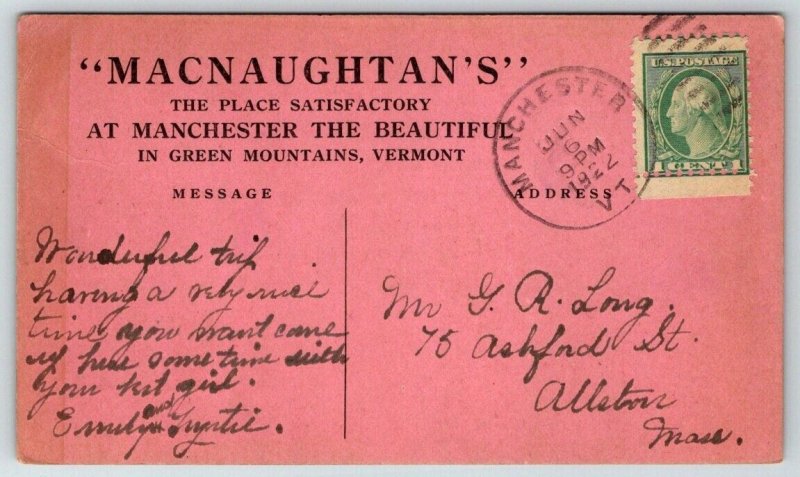 "MACNAUGHTAN'S"
THE PLACE SATISFACTORY
AT MANCHESTER THE BEAUTIFUL
IN GREEN MOUNTAINS, VERMONT
MESSAGE
ADDRESS
MANCHESTER
JUN
6
9 PM
1922
VT
U.S. POSTAGE
1 CENT 1
Wonderful trip
having a very nice
time you want come
up here some time with
your girl.
Emily and
Mr G. R. Long.
75 Ashford St.
Allston
Mass.